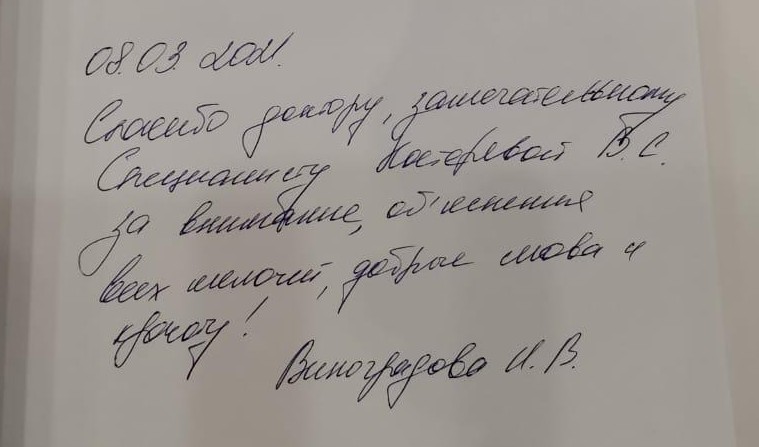 08.03.2021.
Спасибо доктору, замечательному
Специалисту Костаревой В.С.
за внимание, объяснения
всех мелочей, добрые слова и
красоту!
Виноградова И.В.